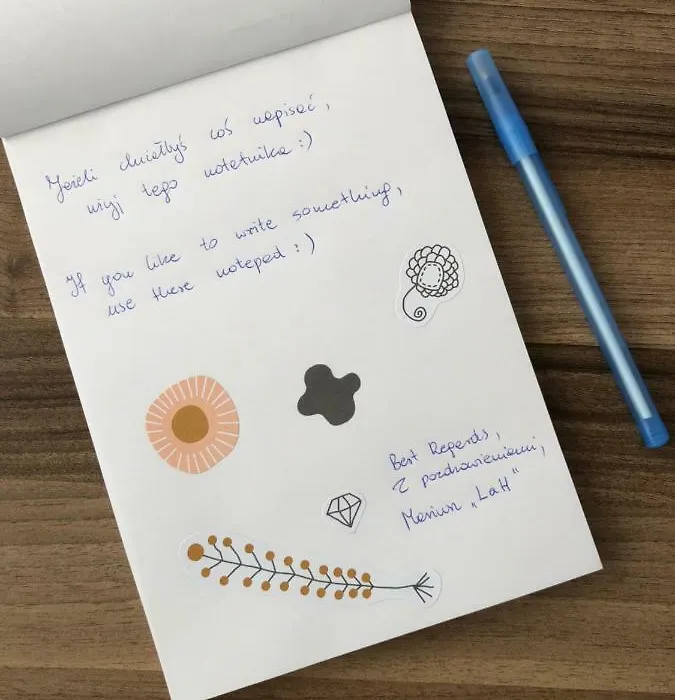 Jeżeli chciałbyś coś napisać,
użyj tego notetnika :)
If you like to write something,
use these notepad :)
Best Regards,
Z pozdrowieniami,
Mariusz „LaH"